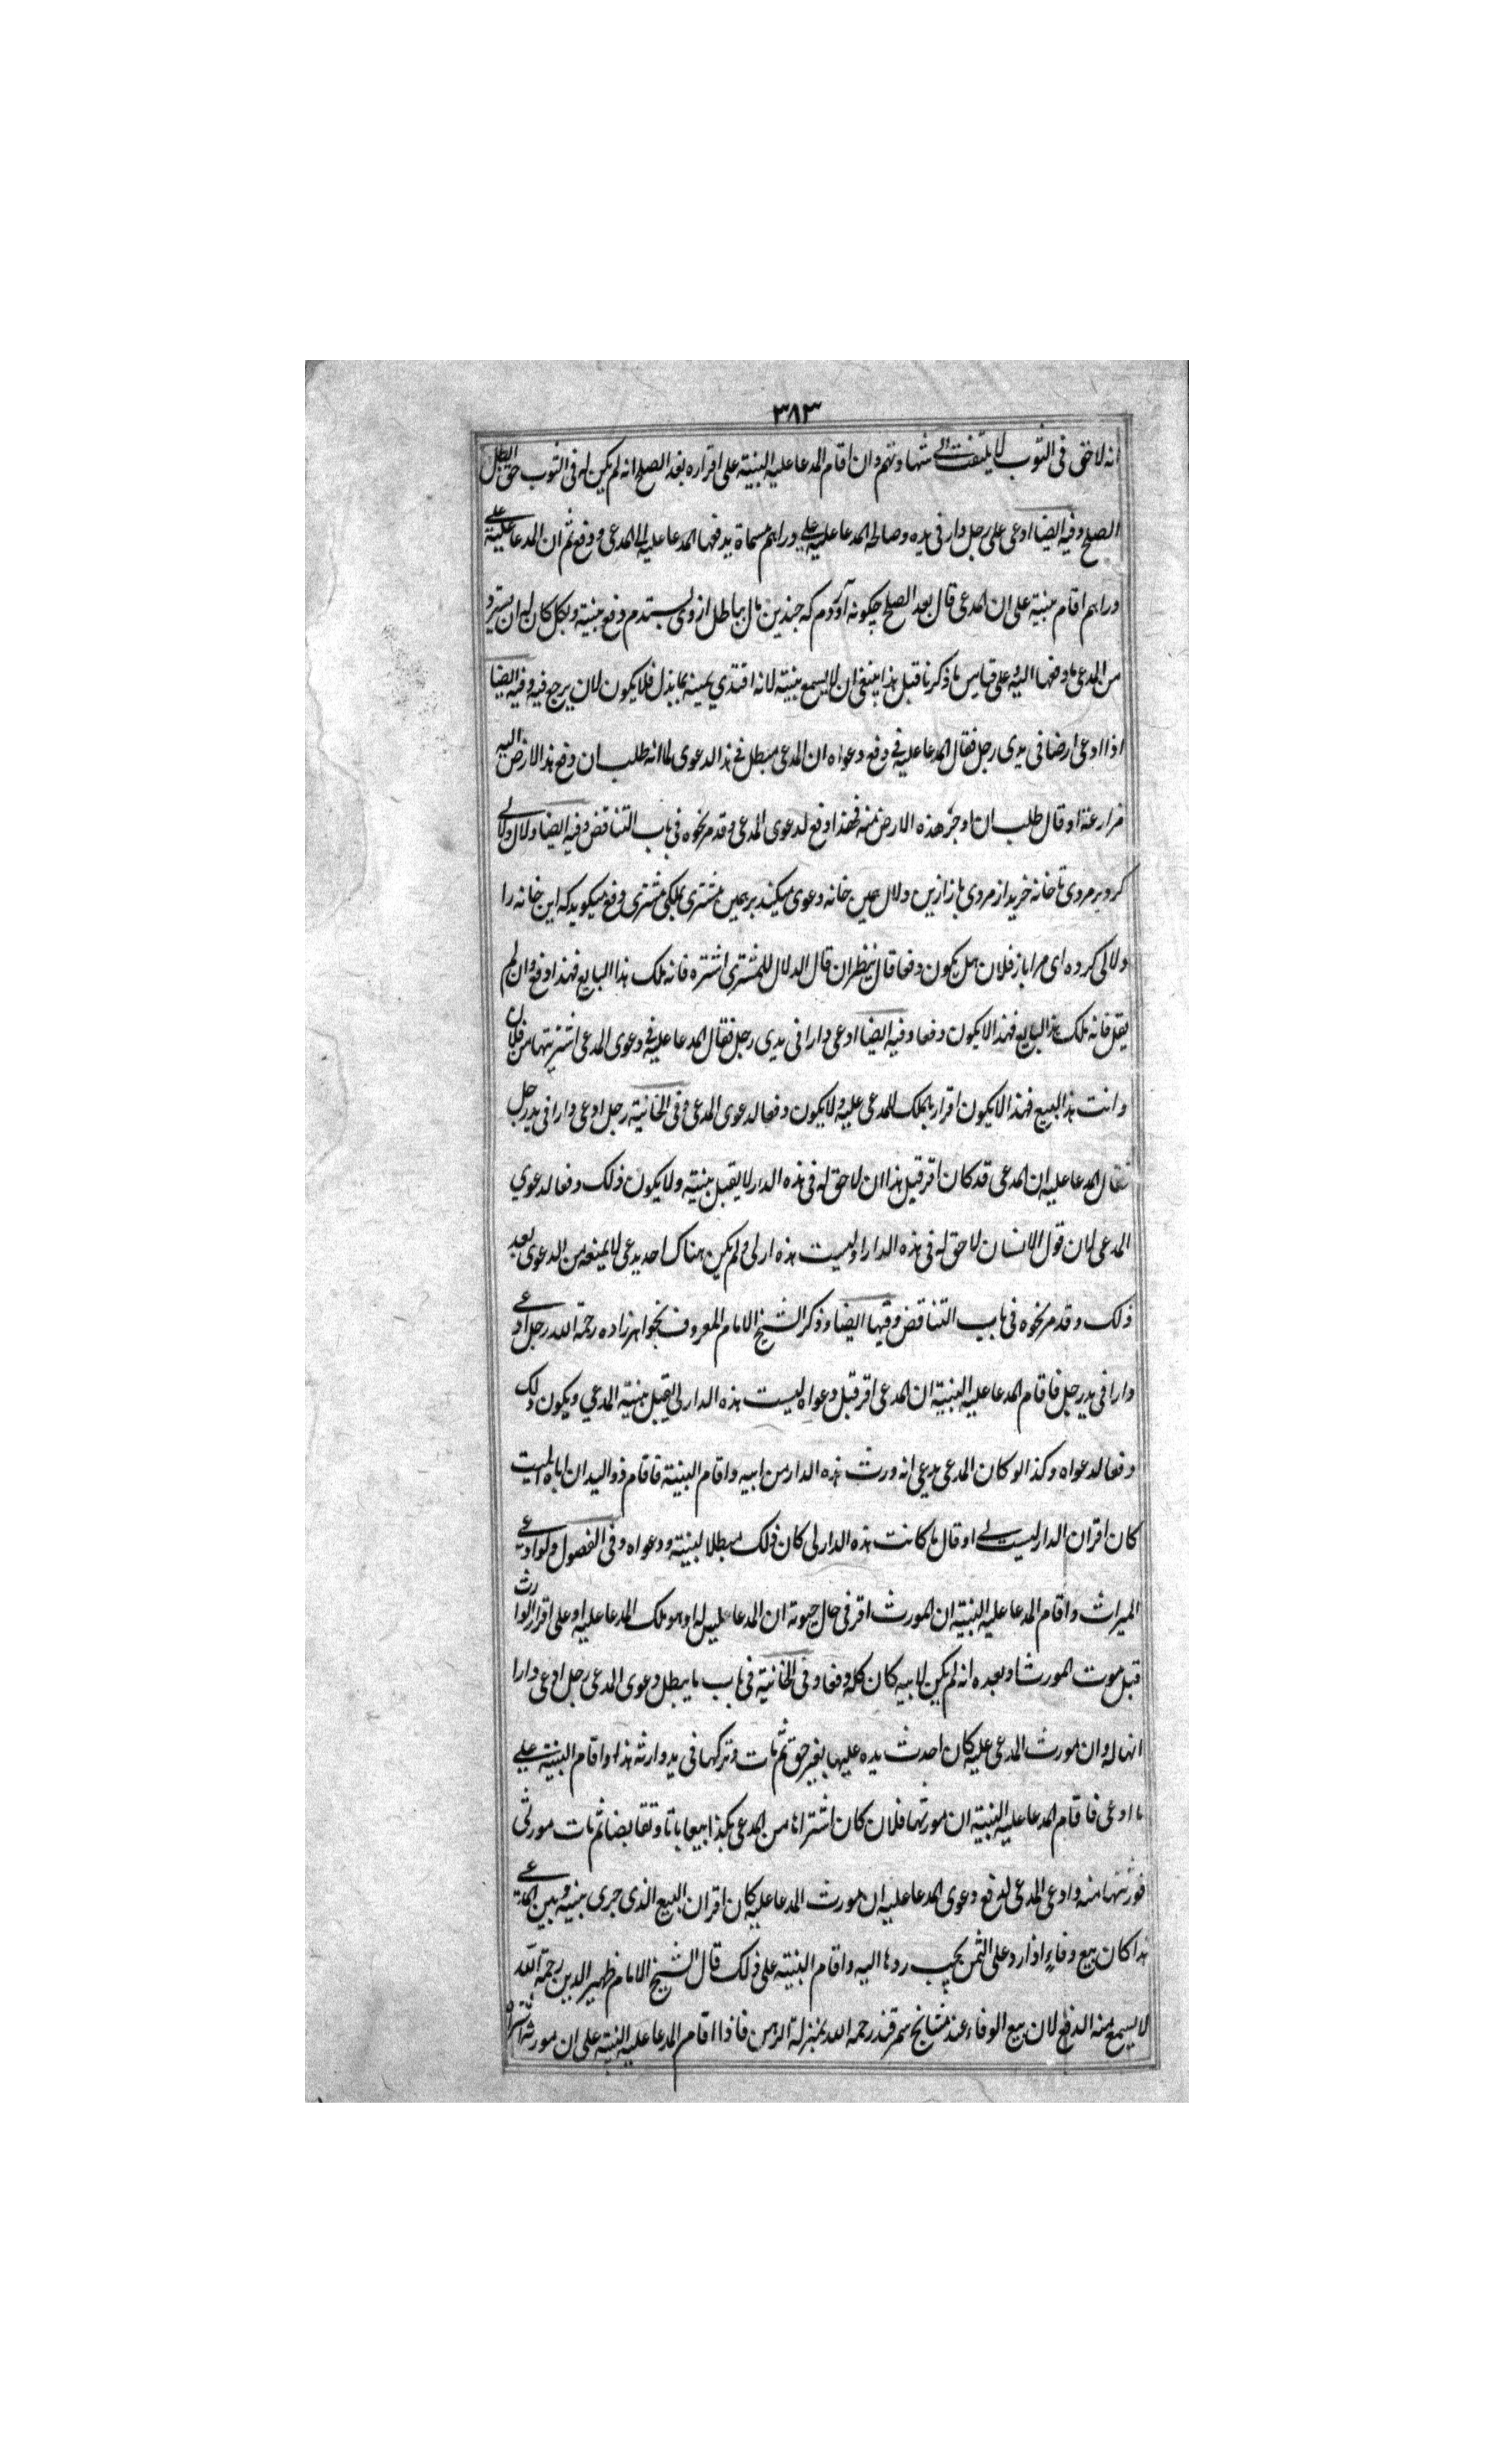 ٣٨٣
انه لا حق فى الثوب لا يلتفت الى شهادتهم وان اقام المدعا عليه البنية على اقراره بعد الصلح انه لم يكن له فى الثوب حق ابطل
الصلح وفيه ايضا ادعى على رجل دار فى يده وصالحه المدعا عليه على دراهم مسماة يدفعها المدعا عليه الى المدعى ودفع ثم ان المدعا عليه
دراهم اقام بنيه على ان المدعى قال بعد الصلح چكونه آوردم كه چندين مال بباطل از وى بستدم دفع بنيته كان له ان يسترد
من المدعى ما دفعها اليه وعلى قياس ما ذكرنا قبل هذا ينبغى ان لا يسمع بنيته لانه افتدى يمينه بما بذل فلا يكون لان يرجع فيه وفيه ايضا
اذا ادعى ارضا فى يدى رجل فقال المدعا عليه فى دفع دعواه ان المدعى مبطل فى هذا الدعوى لما انه طلب ان دفع هذا الارض اليه
مزارعة او قال طلب ان اوجر هذه الارض منه فهذا دفع لدعوى المدعى وقد مر نحوه فى باب التناقض وفيه ايضا دلال دلالى
كرد بر مردى تا خانه خريد از مردى باز اين دلال بعين خانه دعوى ميكند بر همين مشترى بملكى مشترى دفع ميكويد كه اين خانه را
دلالى كرده اى مرا باز فلان هل يكون دفعا قال ينظر ان قال الدلال للمشترى اشتره فانه ملك هذا البايع فهذا دفع وان لم
يقل فانه ملك هذا البايع فهذا لا يكون دفعا وفيه ايضا ادعى دارا فى يدى رجل فقال المدعا عليه فى دعوى المدعى اشتريتها من فلان
وانت هذا البيع فهذا لا يكون اقرار بالملك للمدعى عليه ولا يكون دفعا لدعوى المدعى وفى الخانية رجل ادعى دارا فى يد رجل
فقال المدعا عليه ان المدعى قد كان اقر قبل هذا ان لا حق له فى هذه الدار لا يقبل بينته ولا يكون ذلك دفعا لدعوي
المدعى لان قول الانسان لا حق له فى هذه الدار او ليست هذه ار لى ولم يكن هناك احد يدعى لا يمنعه من الدعوى بعد
ذلك وقد مر نحوه فى باب التناقض وفيها ايضا وذكر الشيخ الامام المعروف بخواهرزاده رحمة الله رجل ادعى
دارا فى يد رجل فاقام المدعا عليه البنية ان المدعى اقر قبل دعواه ليست هذه الدار لى يقبل بنيته المدعي ويكون ذلك
دفعا لدعواه وكذا لو كان المدعى يدعى انه ورث هذه الدار من ابيه واقام البنية فاقام ذو اليد ان اباه الميت
كان اقر ان الدار ليست لى او قال ما كانت هذه الدار لى كان ذلك مبطلا لبنيته ودعواه وفى الفصول ولو ادعى
الميراث واقام المدعا عليه البنية ان المورث اقر فى حال حيوته ان المدعا عليه له او هو ملك المدعا عليه او على اقرار الوارث
قبل موت المورث او بعده انه لم يكن لابيه كان كله دفعا وفى الخانية فى باب ما يبطل دعوى المدعى رجل ادعى دارا
انها له وان مورث المدعى عليه كان احدث يده عليها بغير حق ثم مات وتركها فى يد وارثه هذا واقام البنية على
ما ادعى فاقام المدعا عليه البنية ان مورثها فلان كان اشتراها من المدعى بكذا بيعا باتا وتقابضا ثم مات مورثى
فورثتها منه وادعى المدعى لدفع دعوى المدعا عليه ان مورث المدعا عليه كان اقر ان البيع الذى جرى بينه وبين المدعى
هذا كان بيع وفاء اذا رد على الثمن يجب ردها اليه واقام البنية على ذلك قال الشيخ الامام ظهير الدين رحمة الله
لا يسمع منه الدفع لان بيع الوفاء عند مشائخ سمرقند رحمه الله بمنزلة الرهن فاذا اقام المدعا عليه البنية على ان مورثه اشتراه